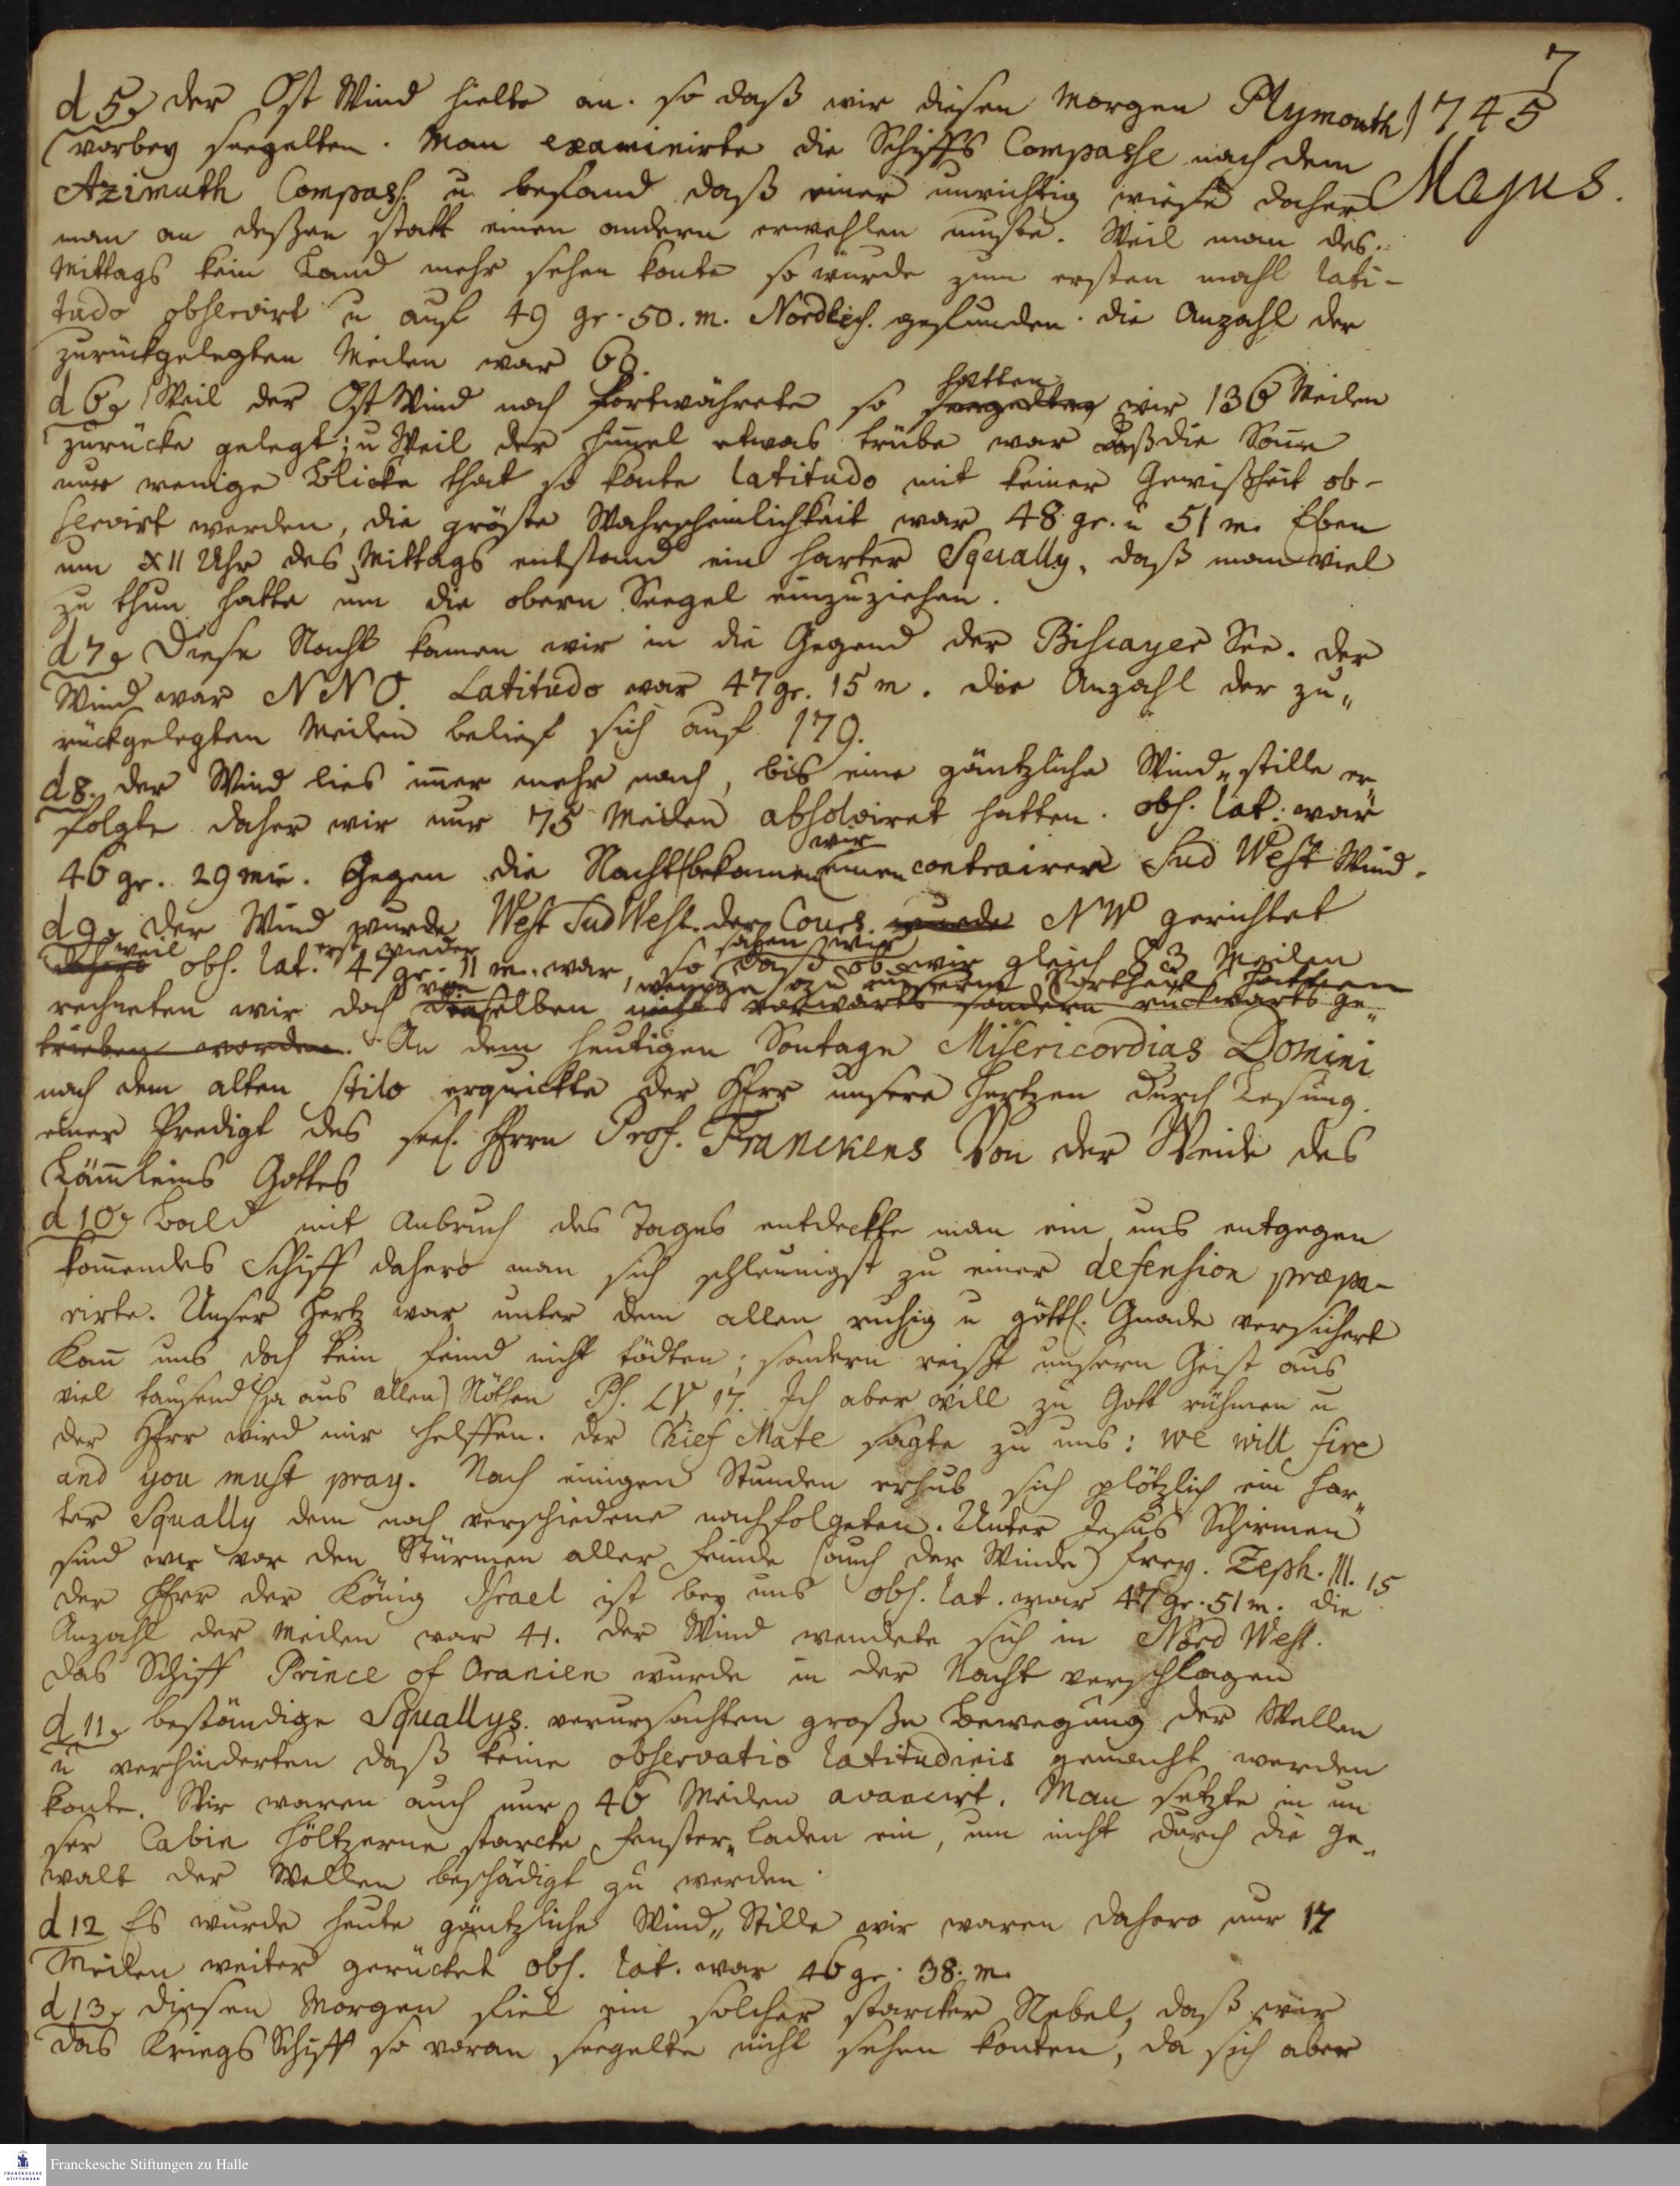 7
1745
Majus.
d 5. der Ost Wind hielte an. so daß wir diesen Morgen Plymouth
vorbey seegelten. Man examinirte die Schiffs Compasse nach dem
Azimuth Compass. u. befand daß einer unrichtig wiese daher
man an deßen statt einen andern erwehlen muste. Weil man des
Mittags kein Land mehr sehen konte so wurde zum ersten mahl lati-
tudo observirt u auf 49 gr. 50. m. Nordlich. gefunden. die Anzahl der
zurückgelegten Meilen war 60.
d 6. Weil der Ost Wind noch fortwährete so hatten seegelten wir 136 Meilen
zurücke gelegt; u Weil der Himel etwas trübe war daß die Sone
nur wenige Blicke that so konte latitudo mit keiner Gewißheit ob-
servirt werden, die gröste Wahrscheinlichkeit war 48 gr. u 51 m. Eben
um XII Uhr des Mittags entstand ein harter Squally, daß man viel
zu thun hatte um die obern Seegel einzuziehen.
d 7. Diese Nacht kamen wir in die Gegend der Biscayer See. der
Wind war NNO. Latitudo war 47 gr. 15 m. die Anzahl der zu„
rückgelegten Meilen belief sich auf 179.
d 8. der Wind lies imer mehr nach, bis eine gäntzliche Wind„stille er„
folgte daher wir nur 75 Meilen absolviret hatten. obs. lat. war
46 gr. 29 min. Gegen die Nacht bekamen wir einen contrairen Sud West Wind.
d 9. der Wind wurde West Sud West. der Cours. wurde NW gerichtet
weil obs. lat. erst wieder 47 gr. 11 m. war, so sahen wir daß ob wir gleich 83 Meilen
rechneten wir doch von dieselben wenige zu unserm Vortheil hatten nicht vorwärts sondern rückwärts ge„
trieben worden. An dem heutigen Sontage Misericordias Domini
nach dem alten stilo erquickte der Herr unsere Hertzen durch Lesung
einer Predigt des seel. Herrn Prof. Franckens Von der Weide des
Lämleins Gottes
d 10. Bald mit Anbruch des Tages entdeckte man ein uns entgegen
komendes Schiff dahero man sich schleunigst zu einer defension præpa-
rirte. Unser Hertz war unter dem allen ruhig u göttl. Gnade versichert
Kan uns doch kein Feind nicht tödten; sondern reißt unsern Geist aus
viel tausend (ja aus allen) Nöthen Ps. LV, 17. Ich aber will zu Gott rühmen u
der Herr wird mir helffen. der Chief Mate sagte zu uns: we will fire
and you must pray. Nach einigen Stunden erhub sich plötzlich ein har„
ter Squally dem noch verschiedene nachfolgeten. Unter Jesus Schirmen
sind wir vor den Stürmen aller Feinde (auch der Winde) frey. Zeph. III. 15
der Herr der König Israel ist bey uns obs. lat. war 47 gr. 51 m. die
Anzahl der Meilen war 41. der Wind wendete sich in Nord West.
das Schiff Prince of Oranien wurde in der Nacht verschlagen
d 11. beständige Squallys. verursachten große Bewegung der Wellen
u verhinderten daß keine observatio latitudinis gemacht werden
konte. Wir waren auch nur 46 Meilen avancirt. Man setzte in un
ser Cabin höltzerne starcke Fenster„laden ein, um nicht durch die Ge„
walt der Wellen beschädigt zu werden.
d 12 Es wurde heute gäntzliche Wind„Stille wir waren dahero nur 17
Meilen weiter gerücket obs. lat. war 46 gr. 38. m.
d 13. diesen Morgen fiel ein solcher starcker Nebel, daß wir
das Kriegs Schiff so voran seegelte nicht sehen konten, da sich aber
Franckesche Stiftungen zu Halle